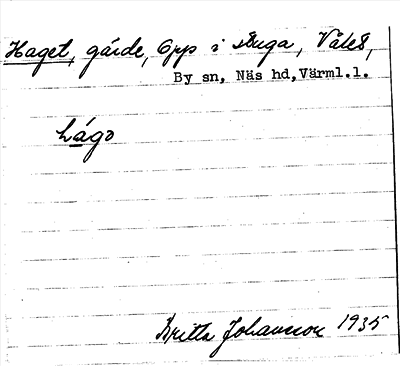 Haget, gärde, Opp i Stuga, Våleš,
By sn, Näs hd, Värml.l.
hágə
Britta Johansson 1935